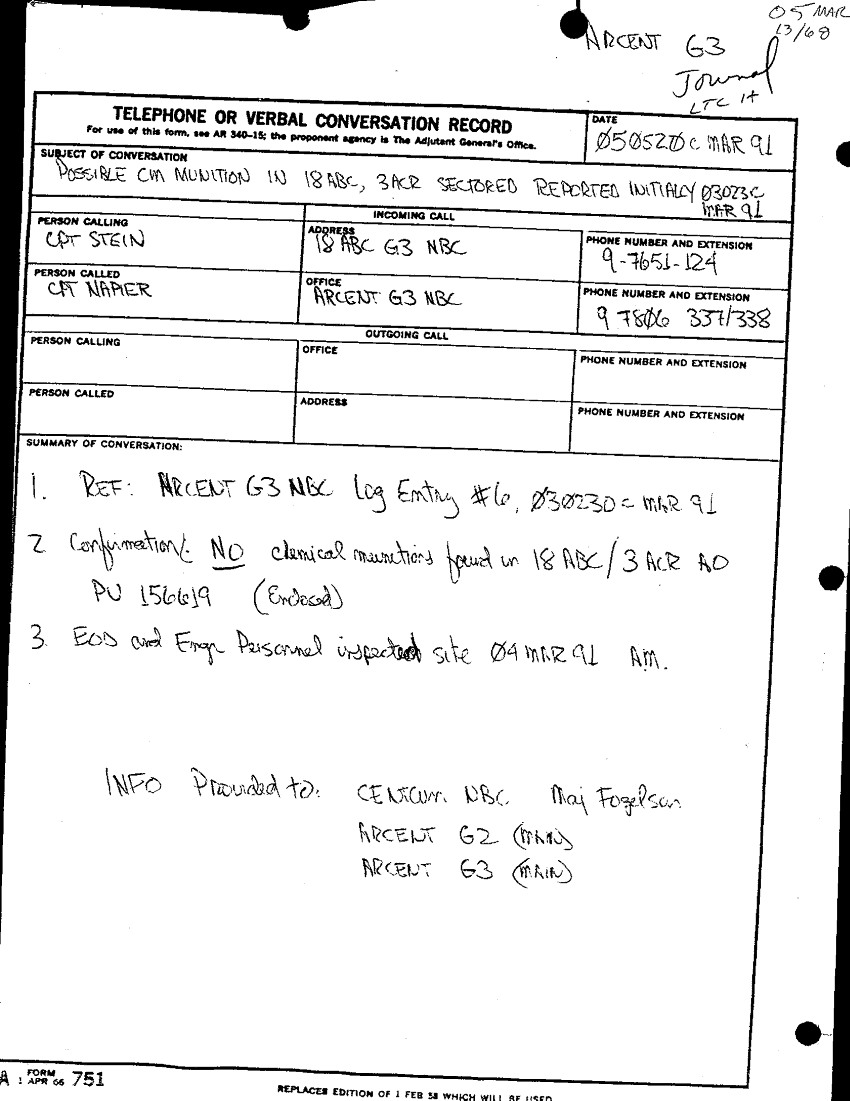 05 MAR
13/68
ARCENT G3
Journal
LTC H
TELEPHONE OR VERBAL CONVERSATION RECORD
For use of this form, see AR 340-15; the proponent agency is The Adjutant General's Office.
DATE
050520C MAR 91
SUBJECT OF CONVERSATION
POSSIBLE CM MUNITION IN 18 ABC, 3 ACR SECTORED REPORTED INITIALLY 03023C
MAR 91
INCOMING CALL
PERSON CALLING
CPT STEIN
ADDRESS
18 ABC G3 NBC
PHONE NUMBER AND EXTENSION
9-7651-124
PERSON CALLED
CPT NAPIER
OFFICE
ARCENT G3 NBC
PHONE NUMBER AND EXTENSION
9 7806 337/338
OUTGOING CALL
PERSON CALLING
OFFICE
PHONE NUMBER AND EXTENSION
PERSON CALLED
ADDRESS
PHONE NUMBER AND EXTENSION
SUMMARY OF CONVERSATION:
1. REF: ARCENT G3 NBC Log Entry #6, 030230C MAR 91
2 Confirmation: NO chemical munitions found in 18 ABC/3 ACR AO
PU 156619 (Enclosed)
3. EOD and Engr Personnel inspected site 04 MAR 91 AM.
INFO Provided to: CENTCOM NBC Maj Fogelson
ARCENT G2 (MAIN)
ARCENT G3 (MAIN)
A FORM 751
1 APR 66
REPLACES EDITION OF 1 FEB 58 WHICH WILL BE USED